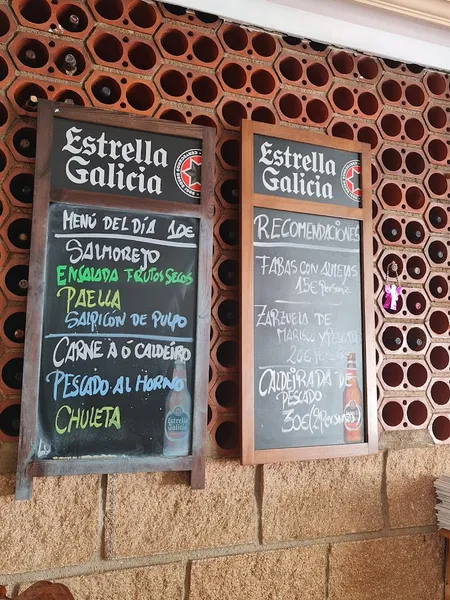 Estrella
Galicia
MENÚ DEL DÍA 10€
SALMOREJO
ENSALADA FRUTOS SECOS
PAELLA
SALPICÓN DE PULPO
CARNE A Ó CALDEIRO
PESCADO AL HORNO
CHULETA
Estrella
Galicia
Estrella
Galicia
RECOMENDACIONES
FABAS CON ALMEJAS
15€ PERSONA
ZARZUELA DE
MARISCO Y PESCADO
20€ PERSONA
CALDEIRADA DE
PESCADO
30€ (2 PERSONAS)